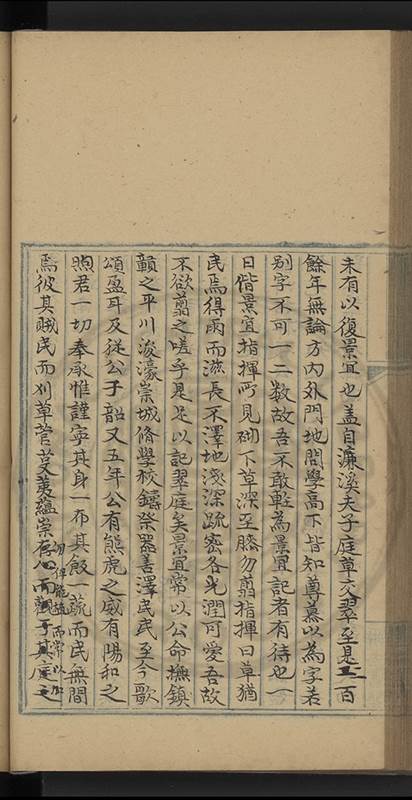 未有以復景宜也蓋自濂溪夫子庭草交翠至是五百
餘年無論方內外門地問學高下皆知尊慕以為字若
別字不可一二數故吾不敢輕為景宜記者有待也一
日偕景宜指揮所見砌下草深至膝勿翦指揮曰草猶
民焉得雨而滋長不澤地淺深疏密各光潤可愛吾故
不欲翦之嗟乎是足以記翠庭矣景宜常以公命撫鎮
贛之平川浚濠崇城脩學校鑄祭器善澤民民至今歌
頌盈耳及從公于韶又五年公有熊虎之威有陽和之
煦君一切奉承惟謹寧其身一布其飯一蔬而民無間
焉彼其賊民而刈草菅芟荑蘊崇存心而觀于其庭之